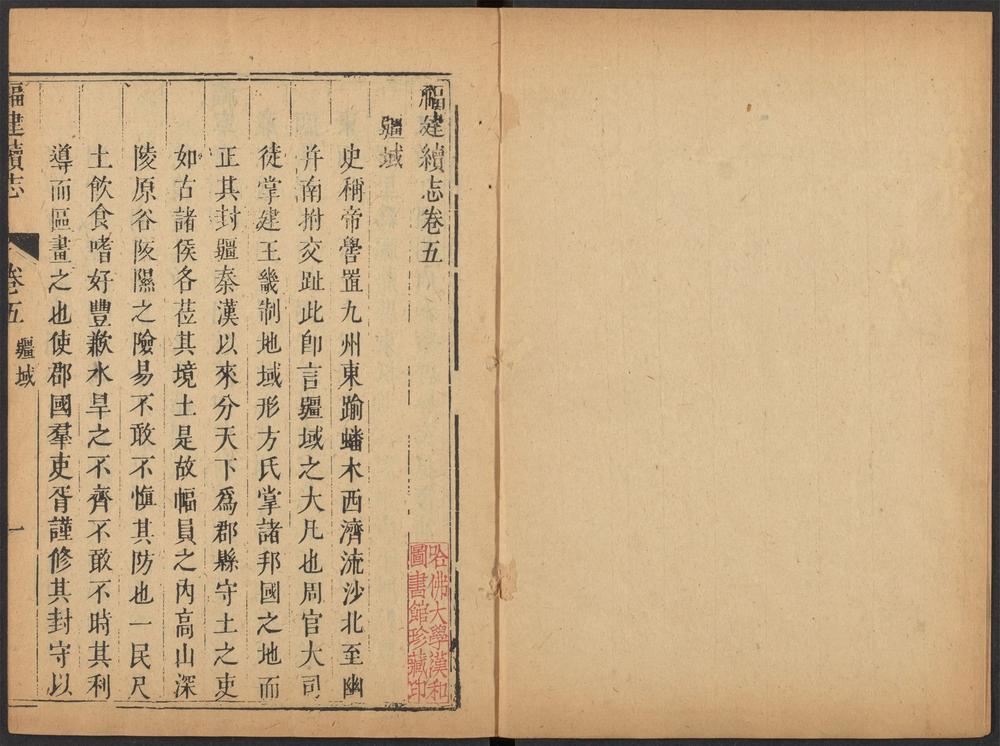 福建續志卷五
疆域
史稱帝嚳置九州東踰蟠木西濟流沙北至幽
并南拊交趾此卽言疆域之大凡也周官大司
徒掌建王畿制地域形方氏掌諸邦國之地而
正其封疆秦漢以來分天下爲郡縣守土之吏
如古諸侯各莅其境土是故幅員之內高山深
陵原谷阪隰之險易不敢不愼其防也一民尺
土飮食嗜好豐歉水旱之不齊不敢不時其利
導而區畫之也使郡國羣吏胥謹修其封守以
福建續志
卷五
疆域
一
哈佛大學漢和
圖書館珍藏印